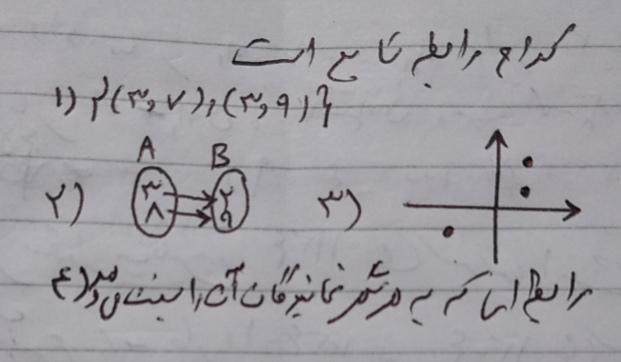 کدام رابطه تابع است
۱) {(۳,۷),(۳,۹)}
A B
۲) ۳ ۸ ۲ ۶ ۳)
۴) رابطه ای که به هر شهر نمایندگان آن را نسبت می دهد